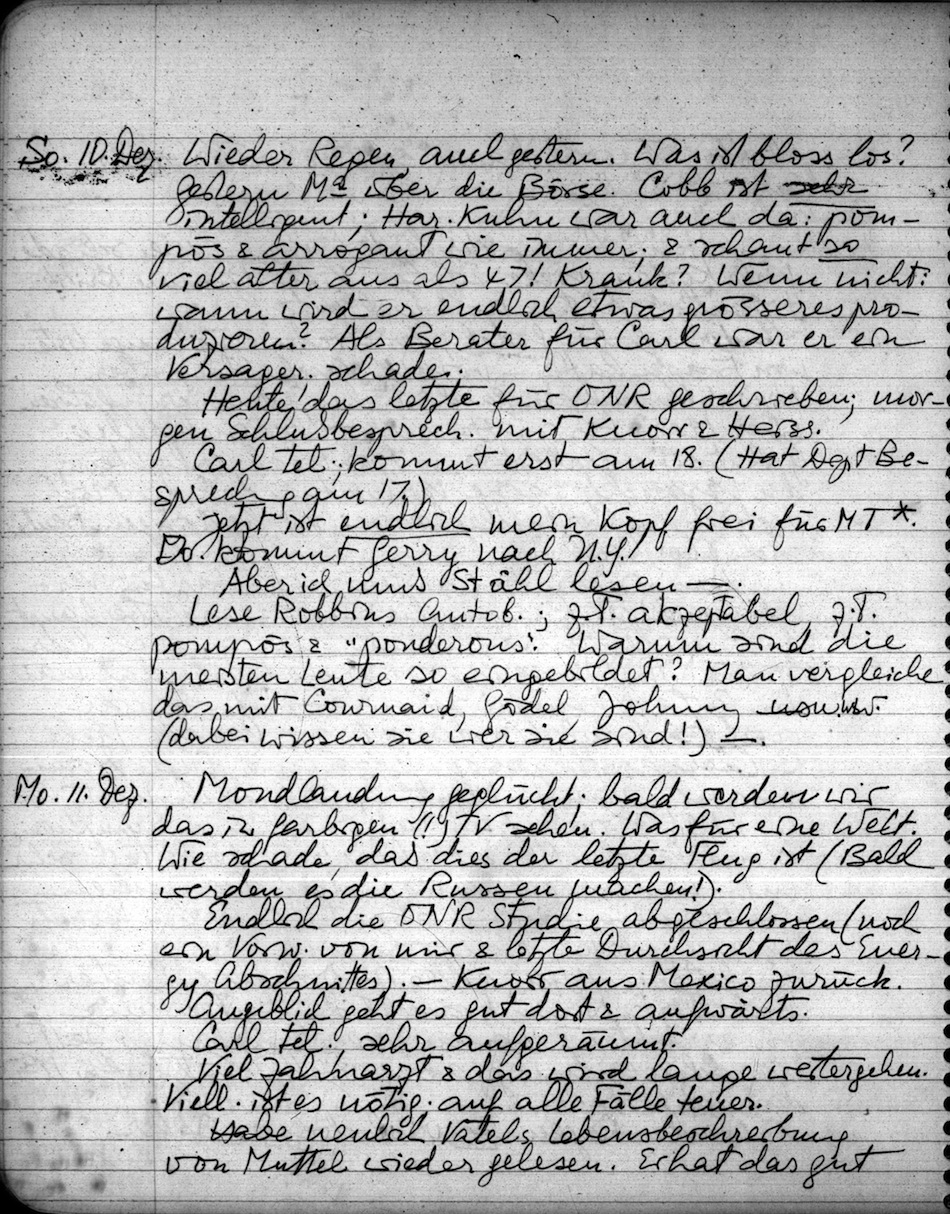 So. 10. Dez. Wieder Regen, auch gestern. Was ist bloss los?
Gestern Ma über die Börse. Cobb ist sehr
intelligent; Har. Kuhn war auch da: pom-
pös & arrogant wie immer; & schaut so
viel älter aus als 47! Krank? Wenn nicht:
wann wird er endlich etwas grösseres pro-
duzieren? Als Berater für Carl war er ein
Versager. schade.
Heute das letzte für ONR geschrieben; mor-
gen Schlusbesprech. mit Knorr & Heiss.
Carl tel.; kommt erst am 18. (Hat Dept Be-
sprechung am 17.)
Jetzt ist endlich mein Kopf frei für MT*.
Do. kommt Gerry nach N.Y.
Aber ich muss Stähl lesen —.
Lese Robbins Autob.; z.T. akzeptabel, z.T.
pompös & "ponderous". Warum sind die
meisten Leute so eingebildet? Man vergleiche
das mit Gödel, Johnny usw.
(dabei wissen sie wer sie sind!) —.
Mo. 11. Dez. Mondlandung geglückt; bald werden wir
das in farbigen (!) TV sehen. Was für eine Welt.
Wie schade, das dies der letzte Flug ist (Bald
werden es die Russen machen!).
Endlich die ONR Studie abgeschlossen (noch
ein Vorw. von mir & letzte Durchsicht des Ener-
gy Abschnittes). — Knorr aus Mexico zurück.
Angeblich geht es gut dort & aufwärts.
Carl tel. sehr aufgeräumt.
Viel Zahnarzt & das wird lange weitergehen.
Viell. ist es nötig; auf alle Fälle teuer.
Habe neulich Vatels Lebensbeschreibung
von Muttel wieder gelesen. Er hat das gut